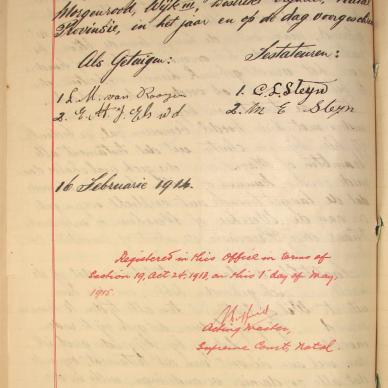 Morgenrood, Wijk III, Distrikt
Provinsie, in het jaar en op de dag voorgeschreven
Als Getuigen: Testateuren:
1 L. M. van Rooyen 1. C. L. Steyn
2. E. H. J. Els wd 2. M E Steyn
16 Februarie 1914.
Registered in this Office in terms of
Section 19, Act 24, 1913, on this 1st day of May
1915.
Acting Master,
Supreme Court, Natal.